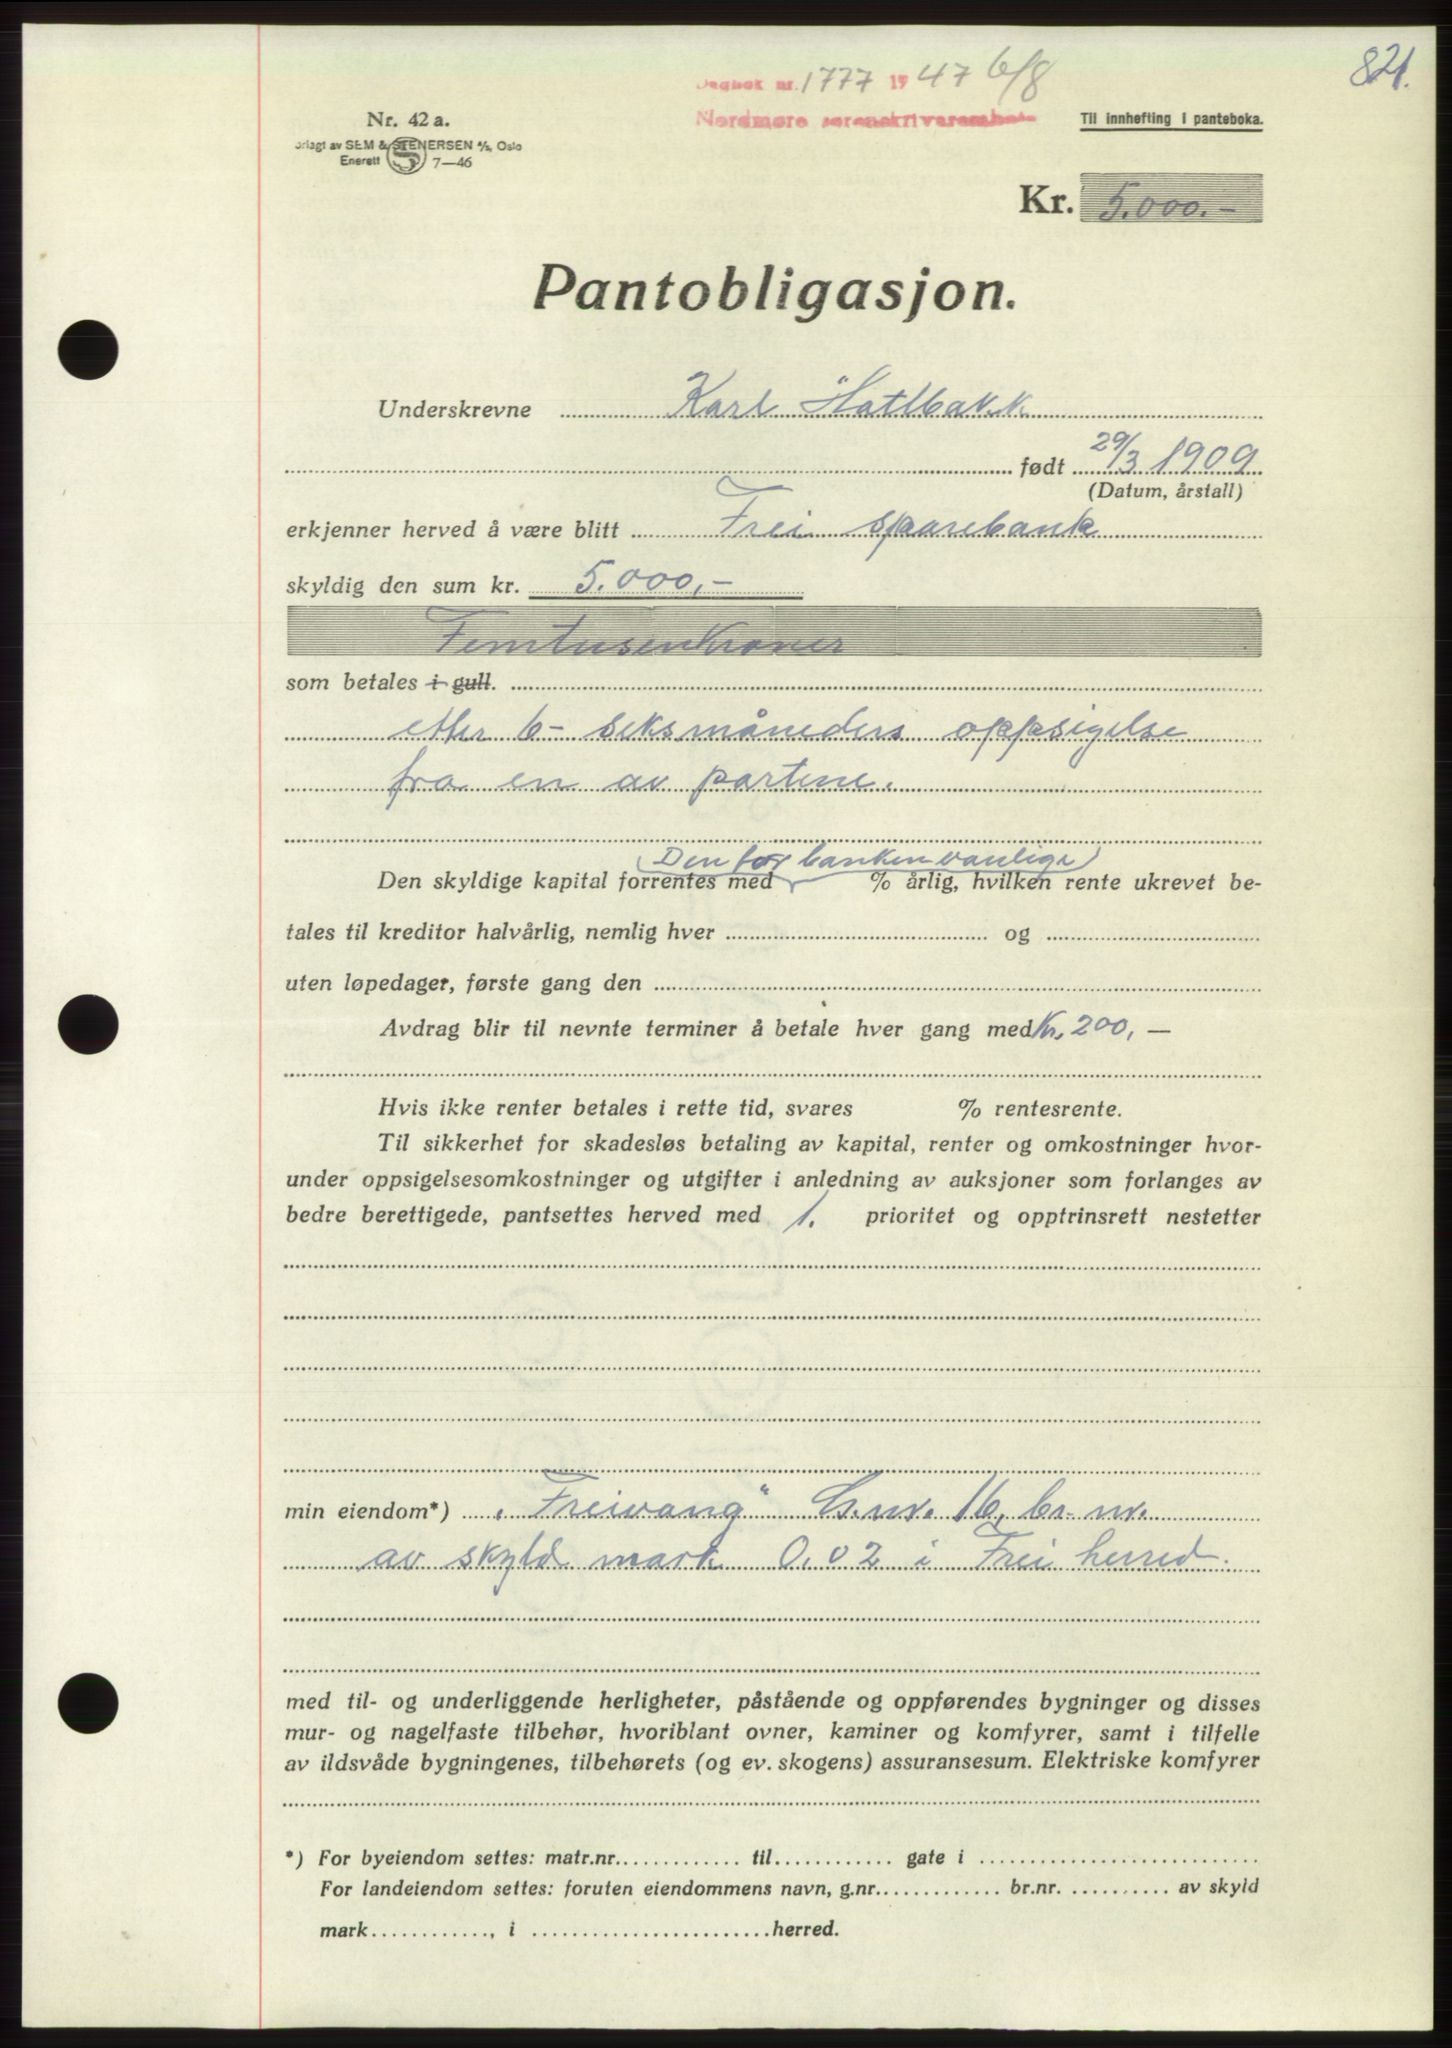 821.
Dagbok nr. 1777 1947 6/8
Nordmøre sorenskriverembete
Nr. 42 a.
orlagt av SEM & STENERSEN A/S, Oslo
Enerett S 7—46
Til innhefting i panteboka.
Kr. 5.000.-
Pantobligasjon.
Underskrevne Karl Hatlbakk
født 29/3 1909
(Datum, årstall)
erkjenner herved å være blitt Frei sparebank
skyldig den sum kr. 5.000,-
Femtusenkroner
som betales i gull.
etter 6- seksmåneders oppsigelse
fra en av partene.
(Den for banken vanlige)
Den skyldige kapital forrentes med % årlig, hvilken rente ukrevet be-
tales til kreditor halvårlig, nemlig hver og
uten løpedager, første gang den
Avdrag blir til nevnte terminer å betale hver gang med Kr. 200,—
Hvis ikke renter betales i rette tid, svares % rentesrente.
Til sikkerhet for skadesløs betaling av kapital, renter og omkostninger hvor-
under oppsigelsesomkostninger og utgifter i anledning av auksjoner som forlanges av
bedre berettigede, pantsettes herved med 1. prioritet og opptrinsrett nestetter
min eiendom*) „Freivang" G.nr. 16, br. nr.
av skyld mark 0.02 i Frei herred.
med til- og underliggende herligheter, påstående og oppførendes bygninger og disses
mur- og nagelfaste tilbehør, hvoriblant ovner, kaminer og komfyrer, samt i tilfelle
av ildsvåde bygningenes, tilbehørets (og ev. skogens) assuransesum. Elektriske komfyrer
*) For byeiendom settes: matr.nr. til gate i
For landeiendom settes: foruten eiendommens navn, g.nr. br.nr. av skyld
mark , i herred.